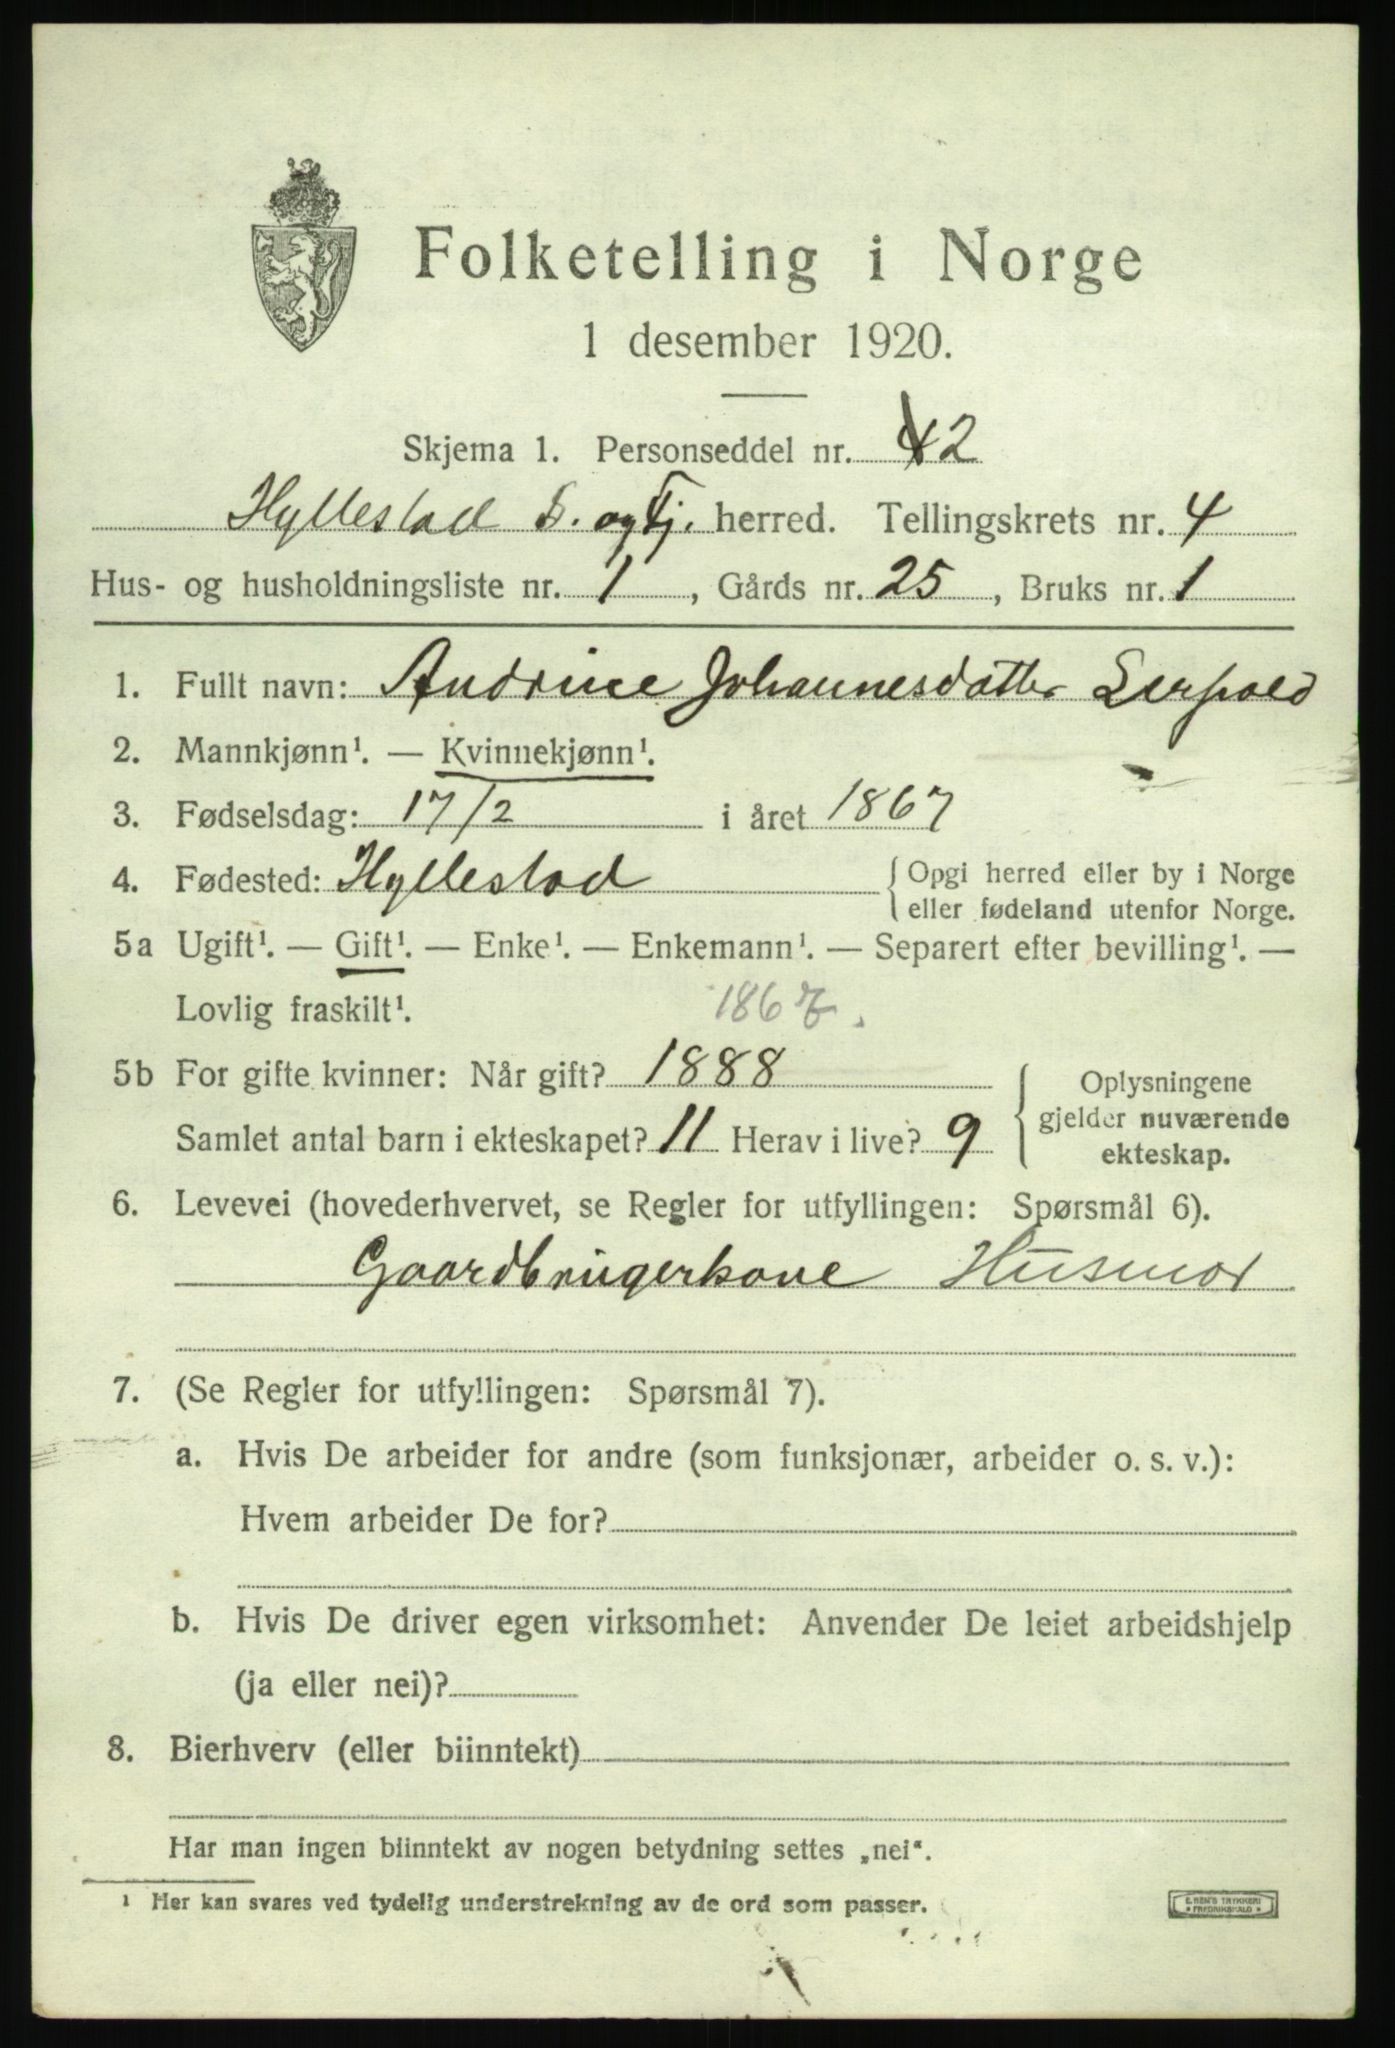 Folketelling i Norge
1 desember 1920.
Skjema 1. Personseddel nr. 2
Hyllestad S. og Fj. herred. Tellingskrets nr. 4
Hus- og husholdningsliste nr. 1, Gårds nr. 25, Bruks nr. 1
1. Fullt navn: Andrine Johannesdatter Leirpold
2. Mannkjønn¹. — Kvinnekjønn¹.
3. Fødselsdag: 17/2 i året 1867
4. Fødested: Hyllestad {Opgi herred eller by i Norge
eller fødeland utenfor Norge.
5a Ugift¹. — Gift¹. — Enke¹. — Enkemann¹. — Separert efter bevilling¹. —
Lovlig fraskilt¹. 1867.
5b For gifte kvinner: Når gift? 1888
Samlet antal barn i ekteskapet? 11 Herav i live? 9
{Oplysningene
gjelder nuværende
ekteskap.
6. Levevei (hovederhvervet, se Regler for utfyllingen: Spørsmål 6).
Gaardbrugerkone Husmor
7. (Se Regler for utfyllingen: Spørsmål 7).
a. Hvis De arbeider for andre (som funksjonær, arbeider o. s. v.):
Hvem arbeider De for?
b. Hvis De driver egen virksomhet: Anvender De leiet arbeidshjelp
(ja eller nei)?
8. Bierhverv (eller biinntekt)
Har man ingen biinntekt av nogen betydning settes „nei“.
¹ Her kan svares ved tydelig understrekning av de ord som passer.
E. REM'S TRYKKERI
* FREDRIKSHALD *